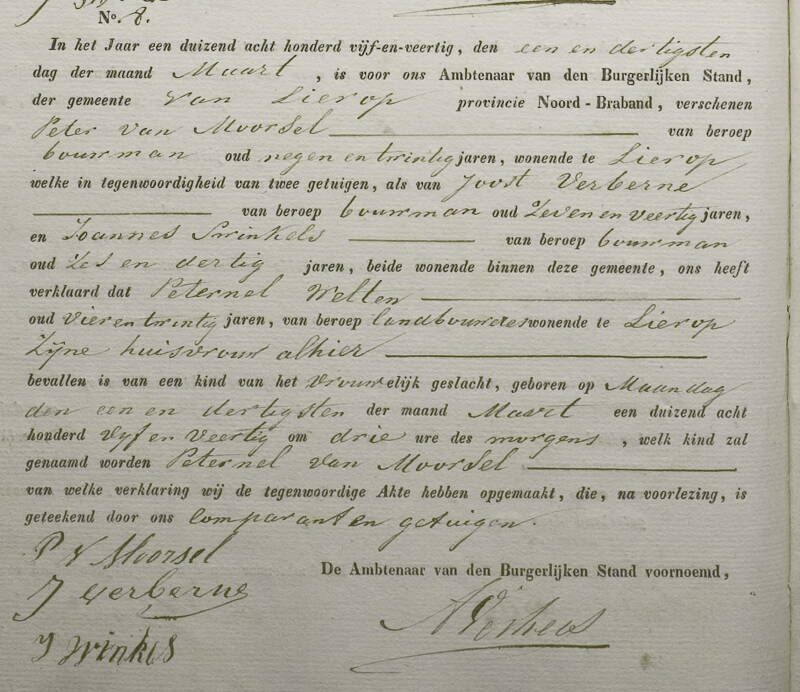 No. 8.
In het Jaar een duizend acht honderd vijf-en-veertig, den een en dertigsten
dag der maand Maart , is voor ons Ambtenaar van den Burgerlijken Stand,
der gemeente van Lierop provincie Noord-Braband, verschenen
Peter van Moorsel van beroep
bouwman oud negen en twintig jaren, wonende te Lierop
welke in tegenwoordigheid van twee getuigen, als van Joost Verberne
van beroep bouwman oud zeven en veertig jaren,
en Joannes Swinkels van beroep bouwman
oud zes en dertig jaren, beide wonende binnen deze gemeente, ons heeft
verklaard dat Peternel Welten
oud vier en twintig jaren, van beroep landbouwdes wonende te Lierop
zijne huisvrouw alhier
bevallen is van een kind van het vrouwelijk geslacht, geboren op Maandag
den een en dertigsten der maand Maart een duizend acht
honderd vyf en veertig om drie ure des morgens , welk kind zal
genaamd worden Peternel van Moorsel
van welke verklaring wij de tegenwoordige Akte hebben opgemaakt, die, na voorlezing, is
geteekend door ons comparant en getuigen.
P V Moorsel
De Ambtenaar van den Burgerlijken Stand voornoemd,
J verberne
J Winkls